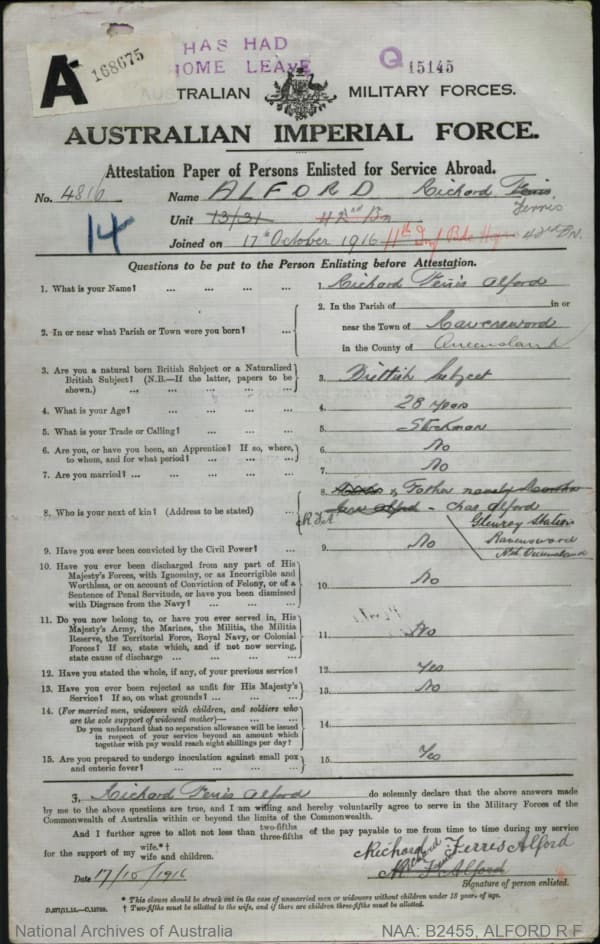 A 168675
HAS HAD
HOME LEAVE
Q 15145
AUSTRALIAN MILITARY FORCES.
AUSTRALIAN IMPERIAL FORCE.
Attestation Paper of Persons Enlisted for Service Abroad.
No. 4816 Name ALFORD Richard Ferris
Ferris
14 Unit 13/31 42nd Bn
Joined on 17th October 1916 11th 42nd BN.
Questions to be put to the Person Enlisting before Attestation.
1. What is your Name? ... ... ... ... 1. Richard Ferris Alford
2. In or near what Parish or Town were you born? ... 2. In the Parish of in or
near the Town of
in the County of Queensland
3. Are you a natural born British Subject or a Naturalized
British Subject? (N.B.—If the latter, papers to be
shown.) ... ... ... ... 3. Brittish Subject
4. What is your Age? ... ... ... ... 4. 28 years
5. What is your Trade or Calling? ... ... ... 5. Stockman
6. Are you, or have you been, an Apprentice? If so, where,
to whom, and for what period? ... ... ... 6. No
7. Are you married? ... ... ... ... 7. No
8. Who is your next of kin? (Address to be stated) ... 8. Father namely
R.F.A. Jane Alford - Chas Alford
Station
Ravensword
Nth Queensland
9. Have you ever been convicted by the Civil Power? ... 9. No
10. Have you ever been discharged from any part of His
Majesty's Forces, with Ignominy, or as Incorrigible and
Worthless, or on account of Conviction of Felony, or of a
Sentence of Penal Servitude, or have you been dismissed
with Disgrace from the Navy? ... ... ... 10. No
11. Do you now belong to, or have you ever served in, His
Majesty's Army, the Marines, the Militia, the Militia
Reserve, the Territorial Force, Royal Navy, or Colonial
Forces? If so, state which, and if not now serving,
state cause of discharge ... ... ... ... 11. No
12. Have you stated the whole, if any, of your previous service? 12. Yes
13. Have you ever been rejected as unfit for His Majesty's
Service? If so, on what grounds? ... ... ... 13. No
14. (For married men, widowers with children, and soldiers who
are the sole support of widowed mother)— ... ...
Do you understand that no separation allowance will be issued
in respect of your service beyond an amount which
together with pay would reach eight shillings per day? 14.
15. Are you prepared to undergo inoculation against small pox
and enteric fever? ... ... ... ... 15. Yes
I, Richard Ferris Alford do solemnly declare that the above answers made
by me to the above questions are true, and I am willing and hereby voluntarily agree to serve in the Military Forces of the
Commonwealth of Australia within or beyond the limits of the Commonwealth.
And I further agree to allot not less than two-fifths three-fifths of the pay payable to me from time to time during my service
for the support of my wife.*† wife and children.
Richard Ferris Alford
Alford
Date 17/10/1916 Signature of person enlisted.
* This clause should be struck out in the case of unmarried men or widowers without children under 18 years of age.
† Two-fifths must be allotted to the wife, and if there are children three-fifths must be allotted.
National Archives of Australia NAA: B2455, ALFORD R F